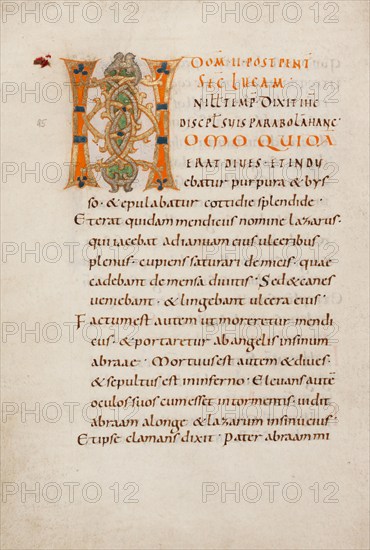 DOM·II·POST PENT̄
SEC̄ LUCAM·
N ILL̄ TEMP̄ DIXIT IHC
DISCPL̄ SUIS PARABOLĀ HANC·
H OMO QUIDĀ
ERAT DIUES· ET INDU
ebatur purpura & bys
so· & epulabatur cottidie splendide·
Et erat quidam mendicus nomine lazarus·
qui iacebat ad ianuam eius ulceribus
plenus· cupiens saturari de micis· quae
cadebant de mensa diuitis· Sed & canes
veniebant· & lingebant ulcera eius·
Factum est autem ut moreretur mendi
cus· & portaretur ab angelis in sinum
abraae· Mortuus est autem & diues·
& sepultus est in inferno· Eleuans autē
oculos suos cum esset in tormentis· uidit
abraam a longe· & lazarum in sinu eius·
Et ipse clamans dixit· Pater abraam mi
PHOTO 12